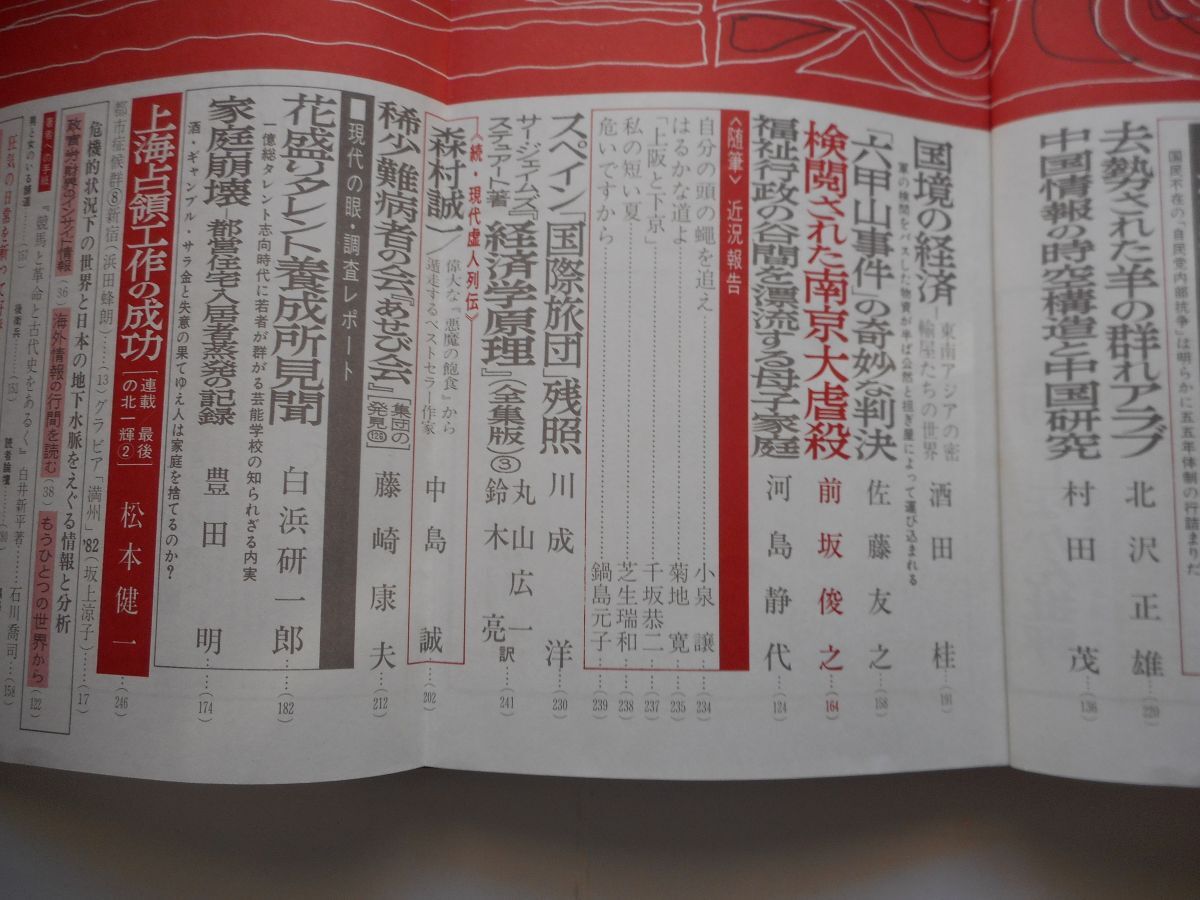 国民不在の"自民党内部抗争"は明らかに五五年体制の行詰まりだ
去勢された羊の群れアラブ 北沢正雄……(220)
中国情報の時空構造と中国研究 村田 茂……(136)
国境の経済―東南アジアの密輸屋たちの世界 酒田 桂……(191)
軍の検問をパスした物資が半ば公然と担ぎ屋によって運び込まれる
「六甲山事件」の奇妙な判決 佐藤友之……(158)
検閲された南京大虐殺 前坂俊之……(164)
福祉行政の谷間を漂流する母子家庭 河島静代……(124)
〈随筆〉 近況報告
自分の頭の蠅を追え……小泉 譲……(234)
はるかな道よ……菊地 寛……(235)
「上阪と下京」……千坂恭二……(237)
私の短い夏……芝生瑞和……(238)
危いですから……鍋島元子……(239)
スペイン「国際旅団」残照 川成 洋……(230)
サー・ジェイムズ・ステュアート著『経済学原理』(全集版)③ 丸山広一 鈴木 亮 訳……(241)
〈続・現代虚人列伝〉
森村誠一/偉大な『悪魔の飽食』から遁走するベストセラー作家 中島 誠……(202)
稀少難病者の会『あせび会』[集団の発見(126)] 藤崎康夫……(212)
■現代の眼・調査レポート
花盛りタレント養成所見聞 白浜研一郎……(182)
一億総タレント志向時代に若者が群がる芸能学校の知られざる内実
家庭崩壊―都営住宅入居者蒸発の記録 豊田 明……(174)
酒・ギャンブル・サラ金と失意の果てゆえ人は家庭を捨てるのか?
上海占領工作の成功[連載 最後の北一輝②] 松本健一……(246)
都市症候群⑧新宿(浜田蜂朗)……(13)グラビア「満州」'82(坂上涼子)……(17)
危機的状況下の世界と日本の地下水脈をえぐる情報と分析
政官労財界のインサイド情報(36) 海外情報の行間を読む(38) もうひとつの世界から(122)
著者への手紙 『競馬と革命と古代史をあるく』白井新平著……石川喬司……(158)
男と女のいる舗道……(157) 後衛兵……(151) 読者論壇……(280)